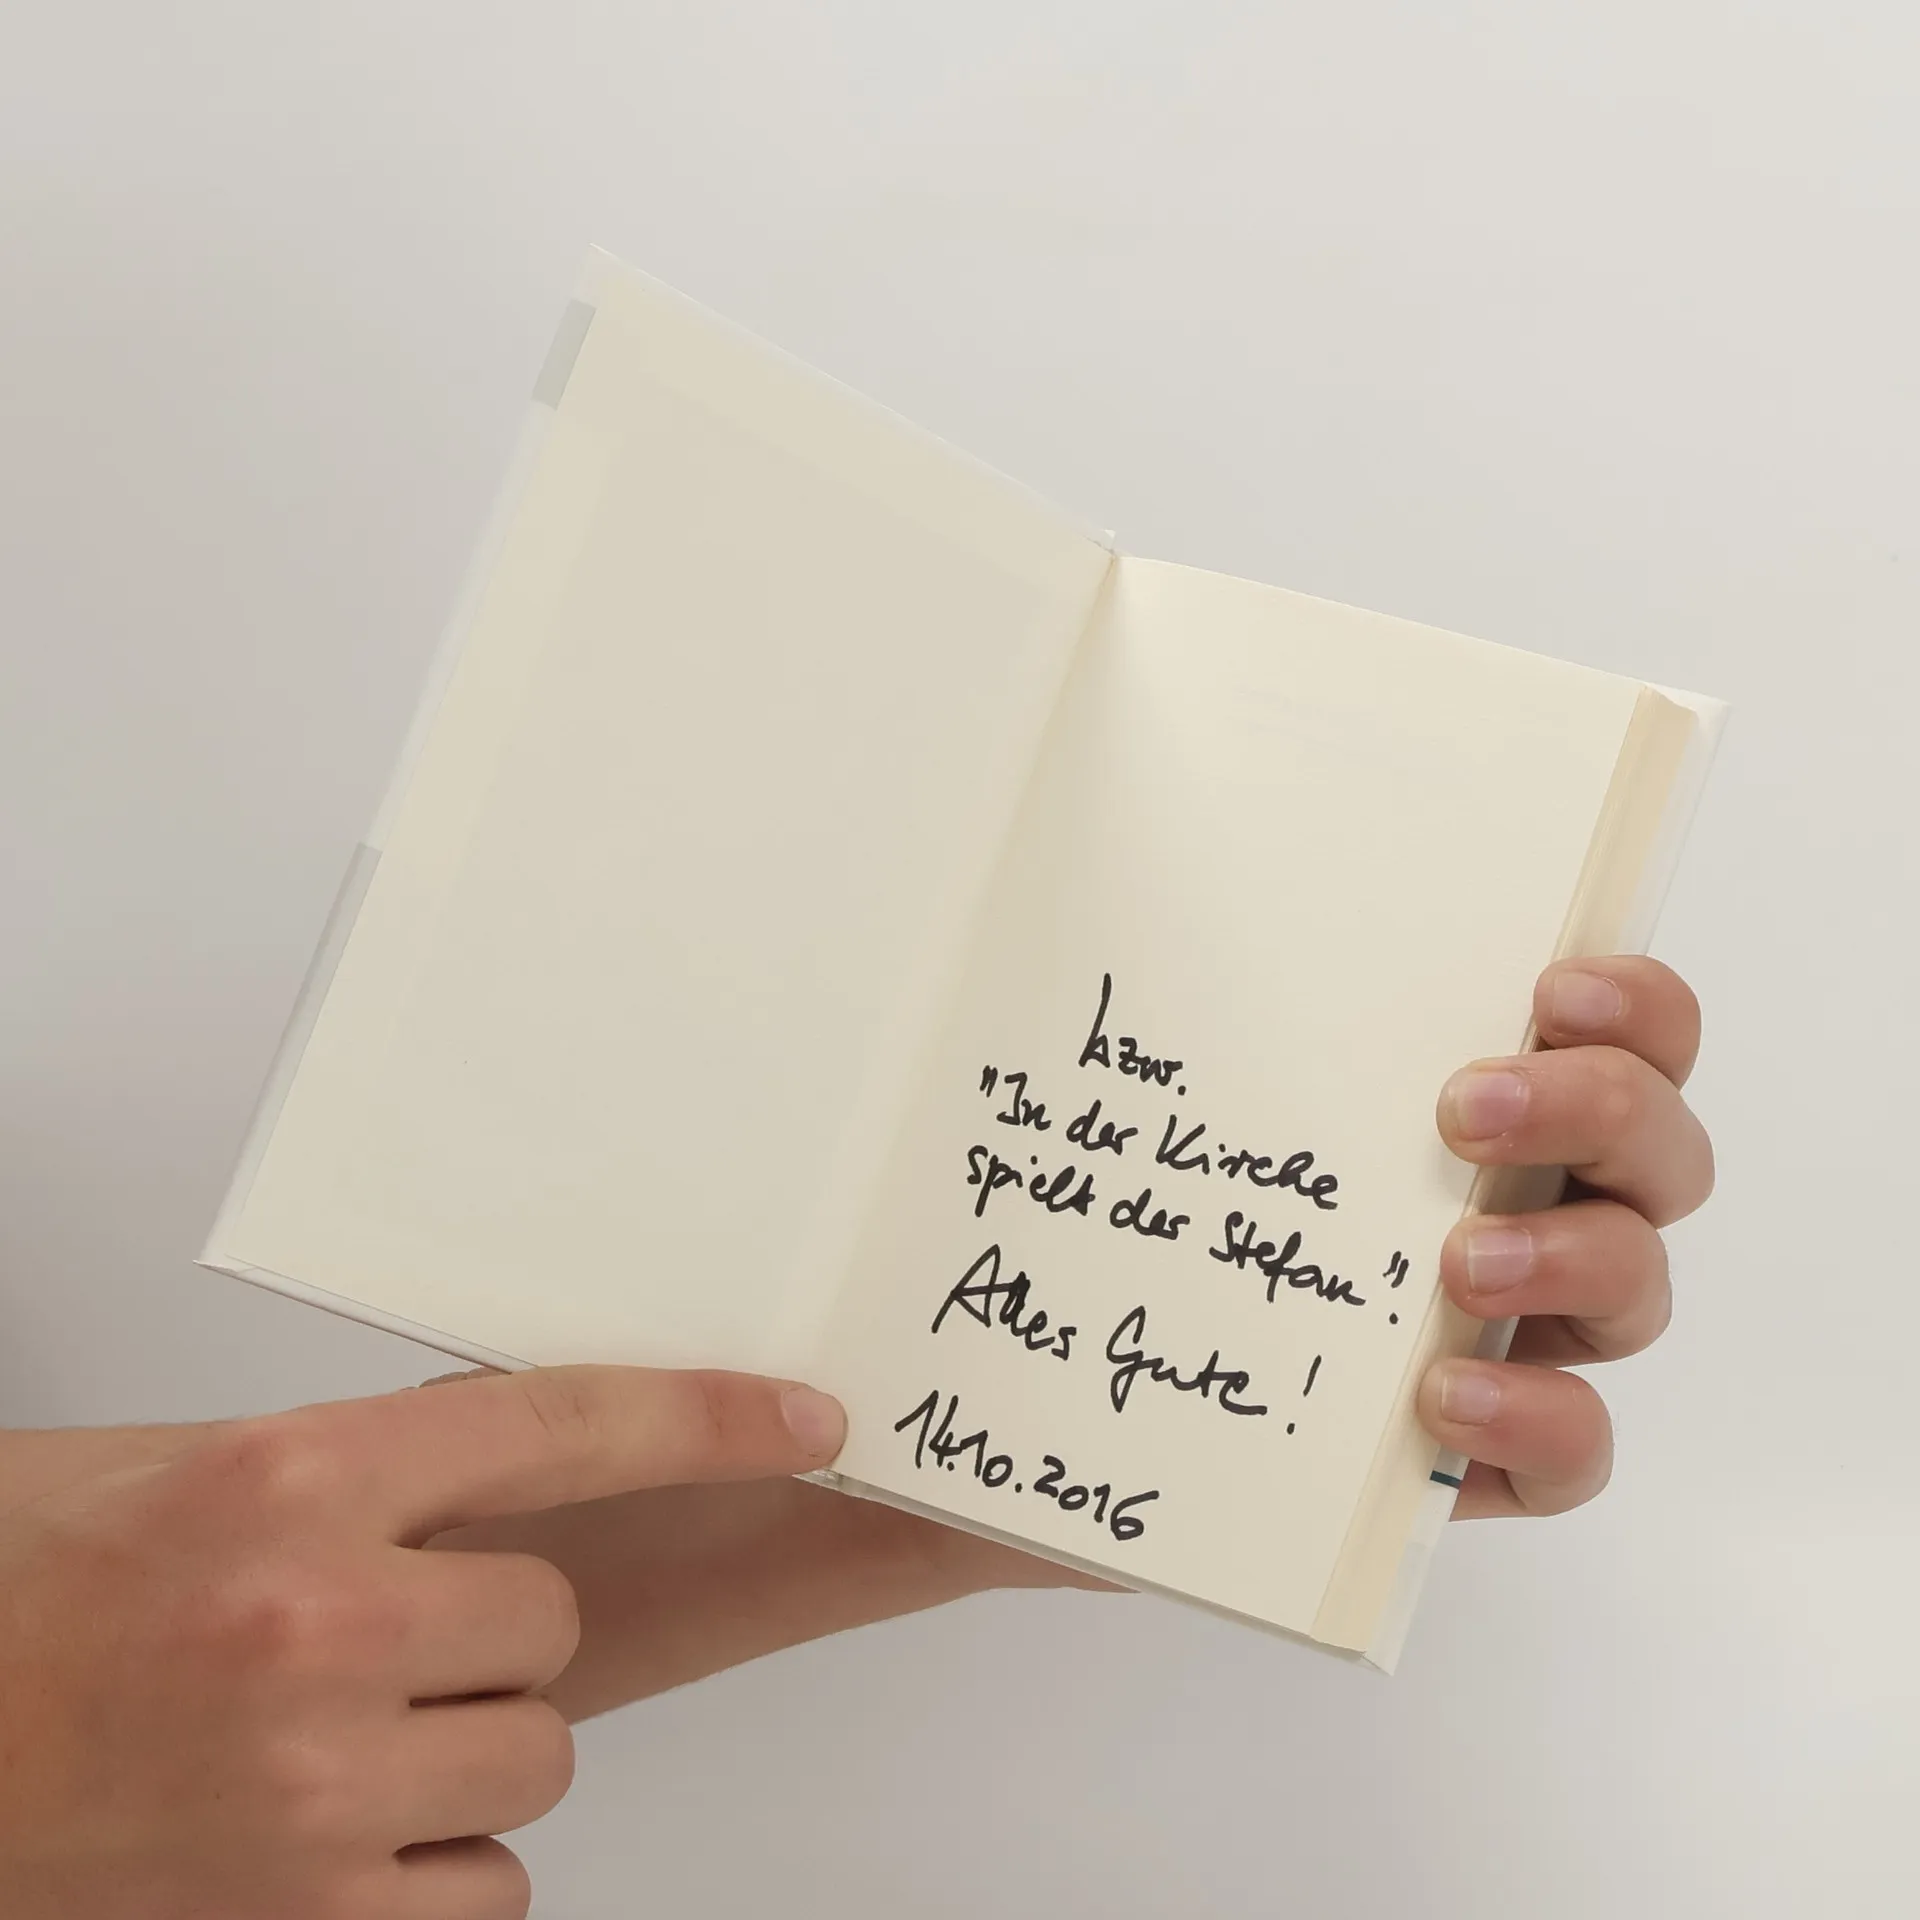 bzw.
"In der Kirche
spielt der Stefan".
Alles Gute!
14.10.2016